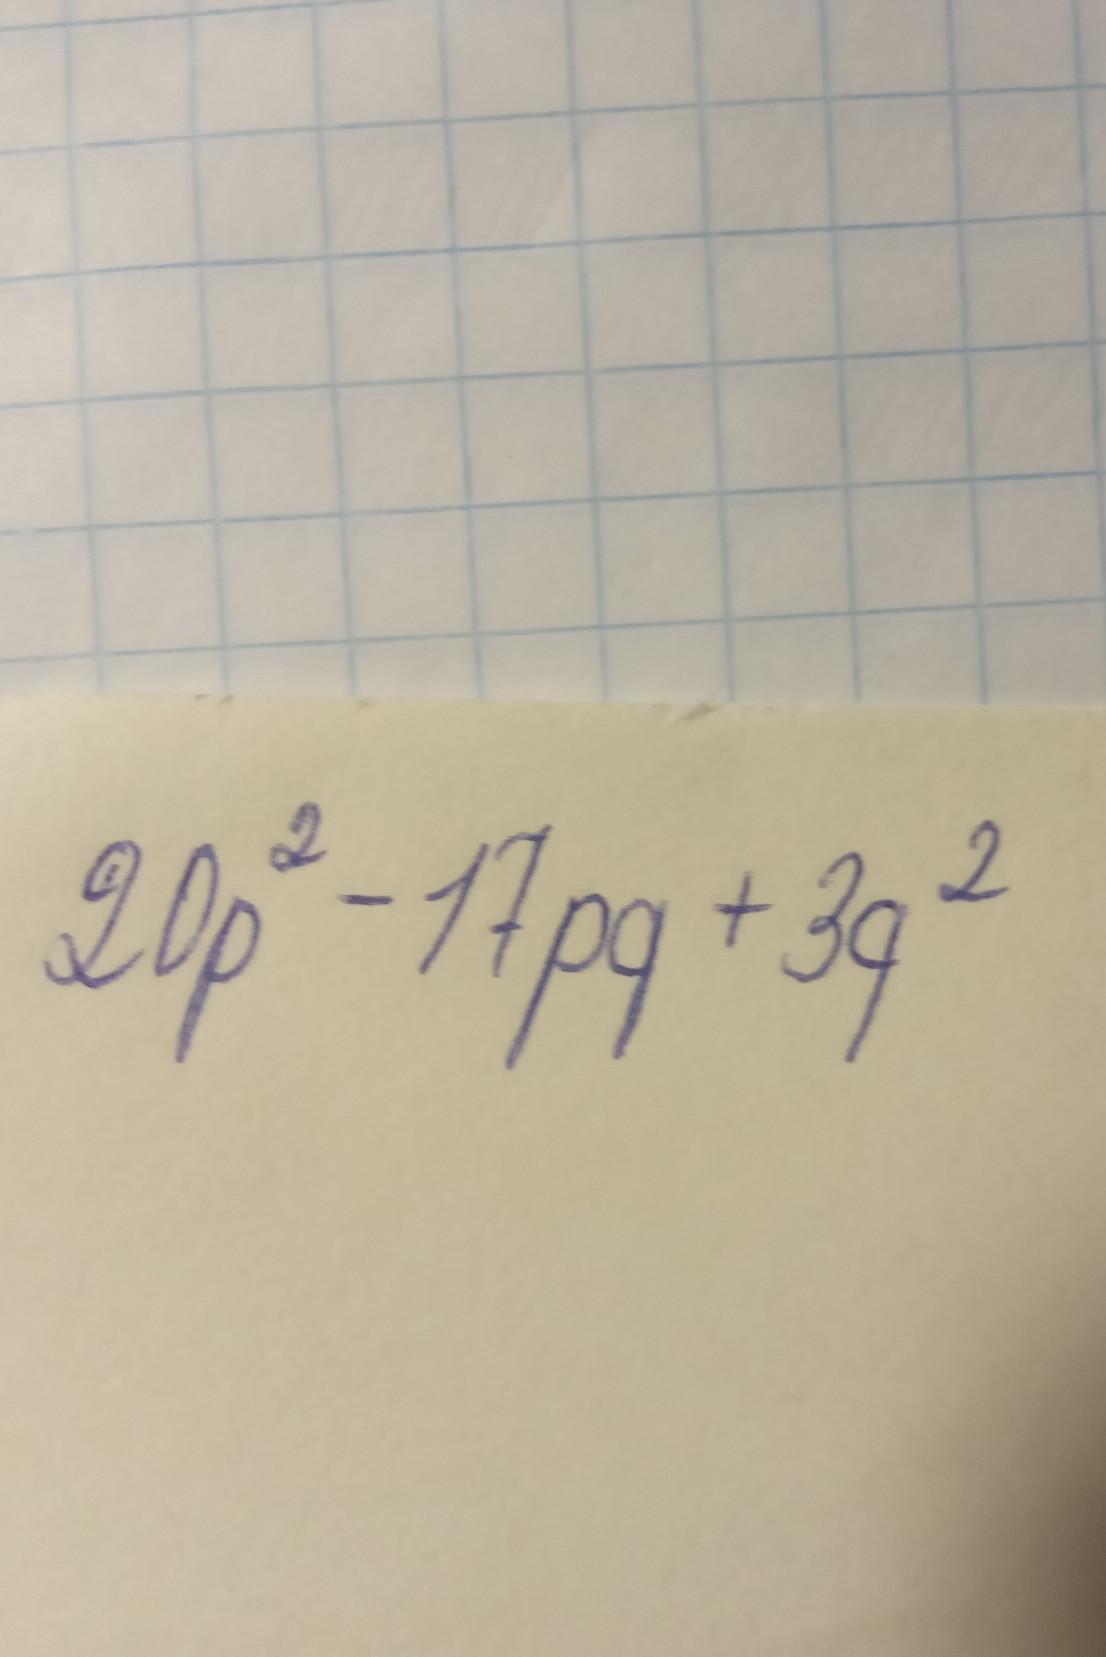 20p² - 17pq + 3q²